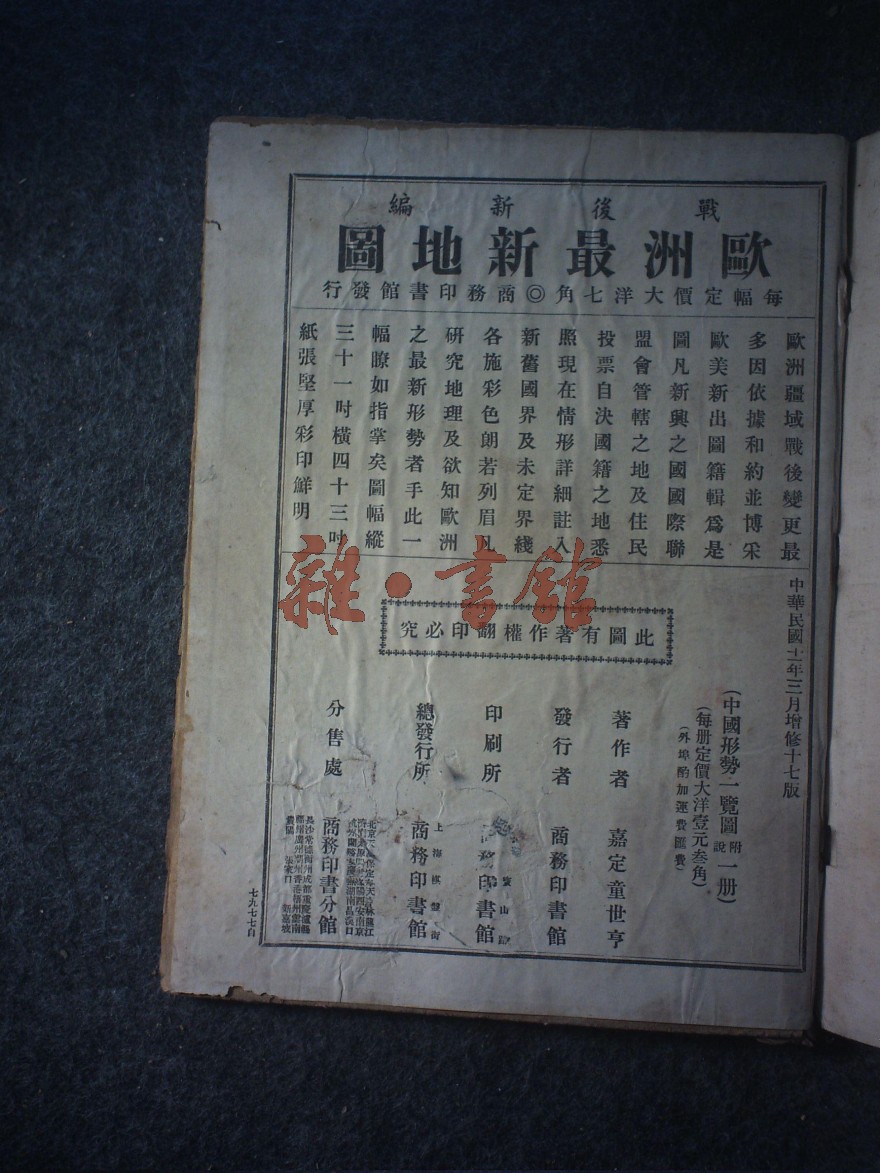 戰後新編
歐洲最新地圖
每幅定價大洋七角◎商務印書館發行
歐洲疆域戰後變更最
多因依據和約並博采
歐美新出圖籍輯爲是
圖凡新興之國國際聯
盟會管轄之地及住民
投票自決國籍之地悉
照現在情形詳細註入
新舊國界及未定界綫
各施彩色朗若列眉凡
研究地理及欲知歐洲
之最新形勢者手此一
幅瞭如指掌矣圖幅縱
三十一吋橫四十三吋
紙張堅厚彩印鮮明
雜·書館
此圖有著作權翻印必究
中華民國十一年三月增修十七版
(中國形勢一覽圖附說一册)
(每册定價大洋壹元叁角)
(外埠酌加運費匯費)
著作者 嘉定童世亨
發行者 商務印書館
印刷所 寶山路 商務印書館
總發行所 上海棋盤街 商務印書館
分售處 商務印書分館
七九七七自